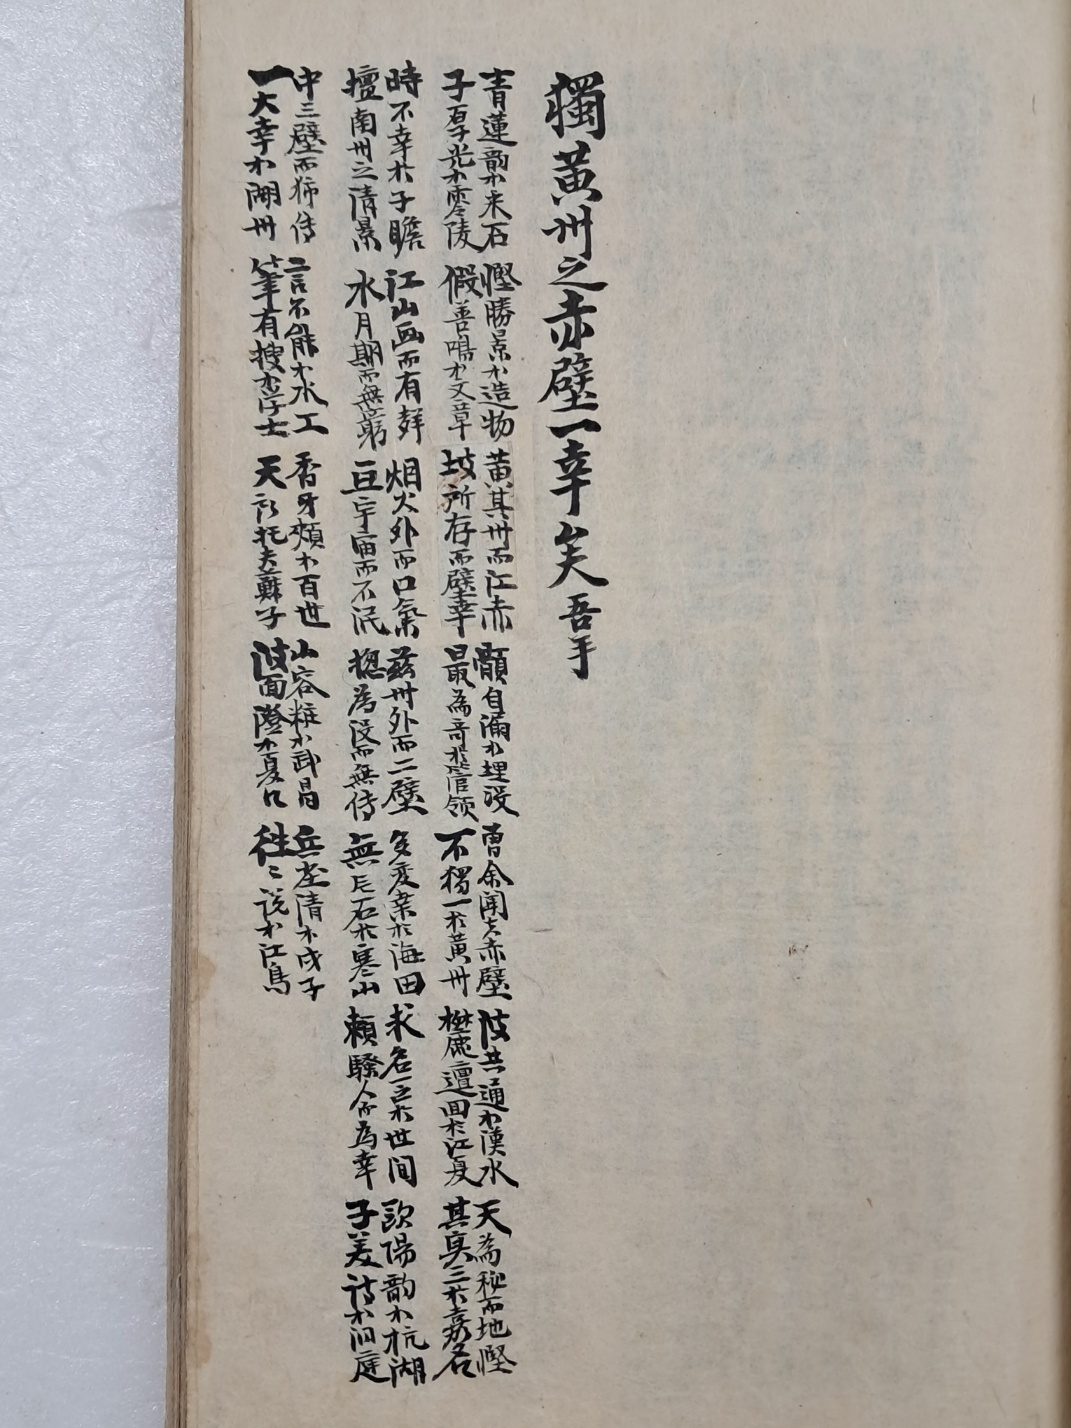 獨黃州之赤壁一幸矣 吾手
青蓮韵於采石 慳勝景於造物 黃其州而江赤 自滿於埋没 曾余聞夫赤壁 彼共通於漢水 天為秘而地慳
子厚光於零陵 假善鳴於文章 坡所存而壁幸 最為奇於管領 不獨一於黃州 樊回於江夏 其奧三於嘉名
時不幸於子瞻 江山画而有辞 烟火外而口氣 玆州外而二壁 多變桒於海田 求名区於世间 歐陽韵於杭湖
擅南州之清景 水月期而無窮 亘宇宙而不泯 揔為没而無傳 無片石於寒山 賴騷人而為幸 子美詩於洞庭
中三壁而獨傳 言不能於水工 香牙頰於百世 山容粧於武昌 兵塵清於戍子
一大幸於湖州 筆有搜於學士 天所托夫蘇子 波面澄於夏口 往〻說於江烏